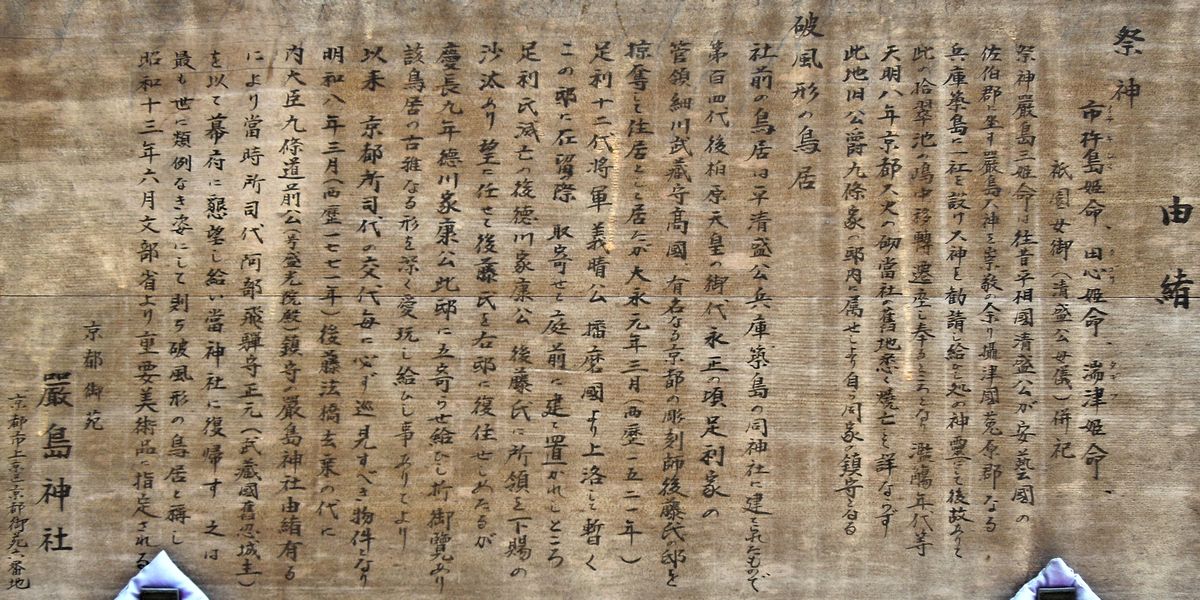 由緒
祭神
市杵島姫命、田心姫命、湍津姫命、
祇園女御(清盛公母儀)併記
祭神嚴島三姫命は往昔平相國清盛公が安藝國の
佐伯郡に坐す嚴島大神を崇敬の余り攝津國菟原郡なる
兵庫築島に一社を設け大神を勧請し給ひし処の神霊にて後故ありて
此の拾翠池の嶋中移轉遷座し奉るところなり 濫觴年代等
天明八年京都大火の砌當社の舊地悉く焼亡し詳ならず
此地旧公爵九條家の邸内に属せしより自ら同家の鎮守となる
破風形の鳥居
社前の鳥居は平清盛公兵庫築島の同神社に建られたもので
第百四代後柏原天皇の御代永正の頃足利家の
管領細川武藏守髙國 有名なる京都の彫刻師後藤氏の邸を
掠奪して住居として居たが大永元年三月(西歴一五二一年)
足利十二代将軍義晴公 播磨國より上洛して暫く
この邸に在留の際 取寄せて庭前に建て置かれしところ
足利氏滅亡の後徳川家康公 後藤氏に所領を下賜の
沙汰あり 望に任せて後藤氏を右邸に復住せしめたるが
慶長九年徳川家康公此邸に立寄らせ給ひし折御覽あり
該鳥居の古雅なる形を深く愛玩し給ひし事ありてより
以来 京都所司代の交代毎に必ず巡見すべき物件となり
明和八年三月(西歴一七七一年)後藤法橋玄乗の代に
内大臣九條道前公(号盛光院殿)鎮守の嚴島神社由緒有る
により當時所司代阿部飛騨守正元(武藏國舊忍城主)
を以て幕府に懇望し給い當神社に復帰す 之は
最も世に類例なき姿にして則ち破風形の鳥居と稱し
昭和十三年六月文部省より重要美術品に指定される
京都御苑
嚴島神社
京都市上京区京都御苑六番地